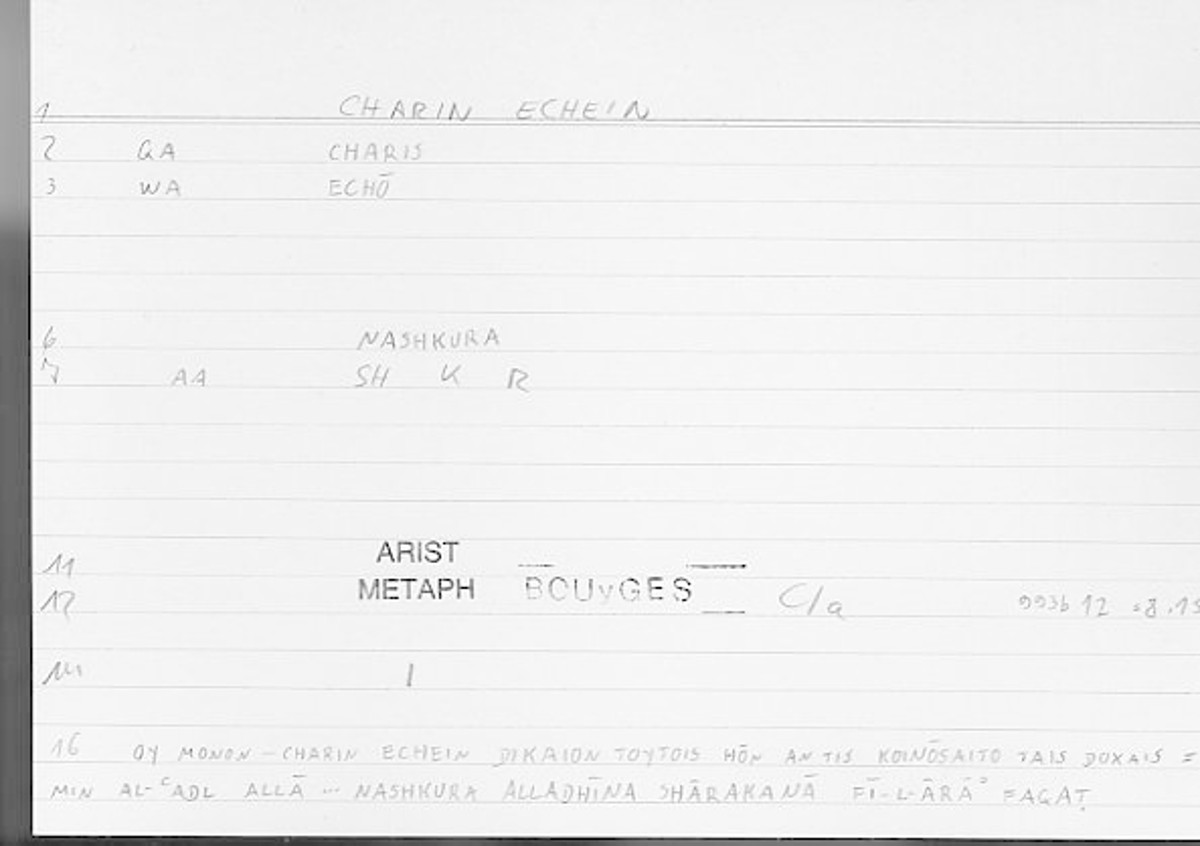 1 CHARIN ECHEIN
2 GA CHARIS
3 WA ECHŌ
6 NASHKURA
7 AA SH K R
11 ARIST
12 METAPH BOUyGES C/a 993b 12 = 8.13
14 1
16 OY MONON – CHARIN ECHEIN DIKAION TOYTOIS HŌN AN TIS KOINŌSAITO TAIS DOXAIS =
MIN AL-ʿADL ALLĀ ... NASHKURA ALLADHĪNA SHĀRAKANĀ FĪ-L-ĀRĀʾ FAQAṬ